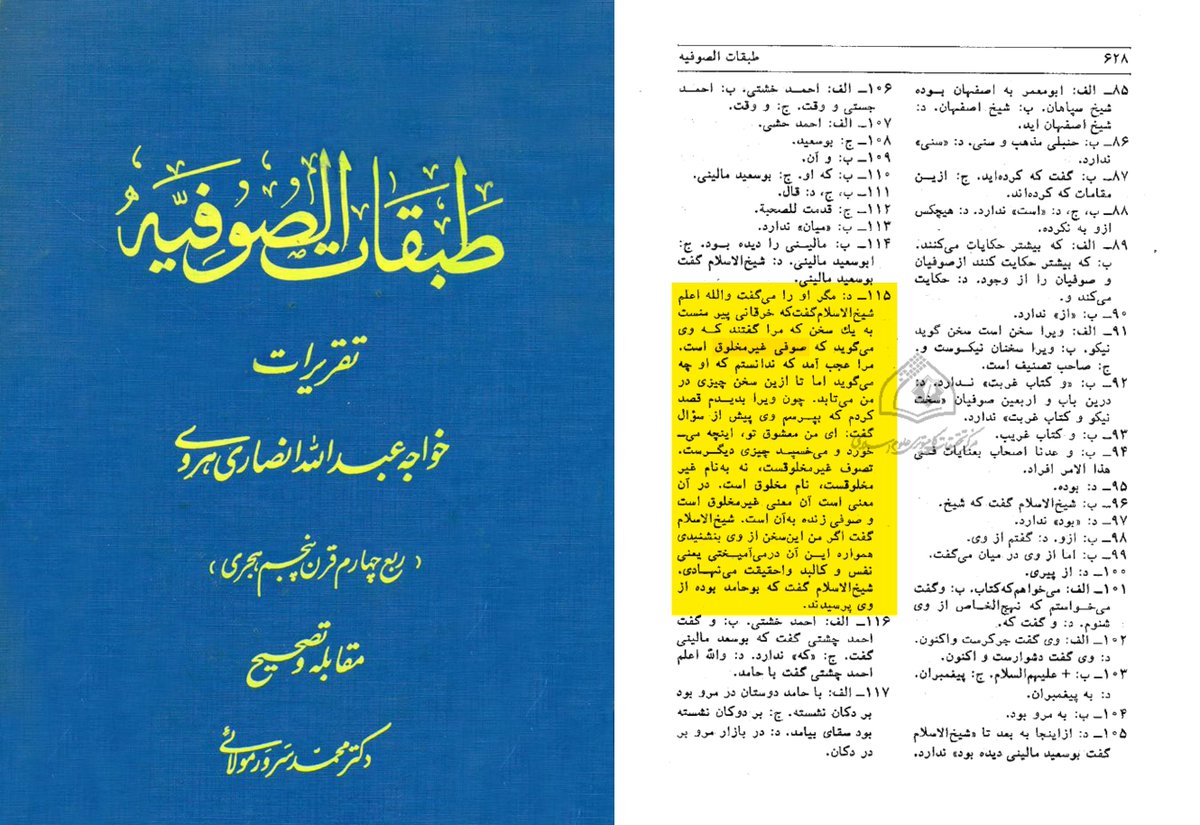 طبقات الصوفیه
تقریرات
خواجه عبدالله انصاری هروی
(ربع چهارم قرن پنجم هجری)
مقابله و تصحیح
دکتر محمد سرور مولائی
۶۲۸
طبقات الصوفیه
۸۵ــ الف: ابومعمر به اصفهان بوده
شیخ سپاهان. ب: شیخ اصفهان. د:
شیخ اصفهان اید.
۸۶ــ ب: حنبلی مذهب و سنی. د: «سنی»
ندارد.
۸۷ــ ب: گفت که کرده‌اید. ج: ازین
مقامات که کرده‌اند.
۸۸ــ ب، ج، د: «است» ندارد. د: هیچکس
ازو به نکرده.
۸۹ــ الف: که بیشتر حکایات می‌کنند.
ب: که بیشتر حکایت کنند ازصوفیان
و صوفیان را از وجود. د: حکایت
می‌کند و.
۹۰ــ ب: «از» ندارد.
۹۱ــ الف: ویرا سخن است سخن گوید
نیکو. ب: ویرا سخنان نیکوست و.
ج: صاحب تصنیف است.
۹۲ــ ب: «و کتاب غربت» ندارد. د:
درین باب و اربعین صوفیان «سخت
نیکو و کتاب غربت» ندارد.
۹۳ــ ب: و کتاب غریب.
۹۴ــ ب: و عدنا اصحاب بعنایات
هذا الامر افراد.
۹۵ــ د: بوده.
۹۶ــ ب: شیخ‌الاسلام گفت که شیخ.
۹۷ــ د: «بود» ندارد.
۹۸ــ ب: ازو. د: گفتم از وی.
۹۹ــ ب: اما از وی در میان می‌گفت.
۱۰۰ــ د: از پیری.
۱۰۱ــ الف: می‌خواهم‌که‌کتاب. ب: وگفت
می‌خواستم که نهج‌الخاص از وی
شنوم. د: و گفت که.
۱۰۲ــ الف: وی گفت جرکرست واکنون.
د: وی گفت دشوارست و اکنون.
۱۰۳ــ ب: + علیهم‌السلام. ج: پیغمبران.
د: به پیغمبران.
۱۰۴ــ ب: به مرو بود.
۱۰۵ــ د: ازاینجا به بعد تا «شیخ‌الاسلام
گفت بوسعید مالینی دیده بود» ندارد.
۱۰۶ــ الف: احمد خشتی. ب: احمد
جستی و وقت. ج: و وقت.
۱۰۷ــ الف: احمد حشی.
۱۰۸ــ ج: بوسعید.
۱۰۹ــ ب: و آن.
۱۱۰ــ ب: که او. ج: بوسعید مالینی.
۱۱۱ــ ب، ج، د: قال.
۱۱۲ــ ج: قدمت للصحبة.
۱۱۳ــ ب: «میان» ندارد.
۱۱۴ــ ب: مالینی را دیده بود. ج:
ابوسعید مالینی. د: شیخ‌الاسلام گفت
بوسعید مالینی.
۱۱۵ــ د: مگر او را می‌گفت والله اعلم
شیخ‌الاسلام‌گفت‌که خرقانی پیر منست
به یك سخن که مرا گفتند که وی
می‌گوید که صوفی غیرمخلوق است.
مرا عجب آمد که ندانستم که او چه
می‌گوید اما تا ازین سخن چیزی در
من می‌تابد. چون ویرا بدیدم قصد
کردم که بپرسم وی پیش از سؤال
گفت: ای من معشوق تو، اینچه می‌ـ
خورد و می‌خسپد چیزی دیگرست.
تصوف غیرمخلوقست، نه به‌نام غیر
مخلوقست، نام مخلوق است. در آن
معنی است آن معنی غیرمخلوق است
و صوفی زنده به‌آن است. شیخ‌الاسلام
گفت اگر من این‌سخن از وی بنشنیدی
همواره این آن درمی‌آمیختی یعنی
نفس و کالبد واحقیقت می‌نهادی.
شیخ‌الاسلام گفت که بوحامد بوده از
وی پرسیدند.
۱۱۶ــ الف: احمد خشتی. ب: و گفت
احمد چشتی گفت که بوسعد مالینی
گفت. ج: «که» ندارد. د: والله اعلم
احمد چشتی گفت با حامد.
۱۱۷ــ الف: با حامد دوستان در مرو بود
بر دکان نشسته. ج: بر دوکان نشسته
بود سقای بیامد. د: در بازار مرو بر
در دکان.